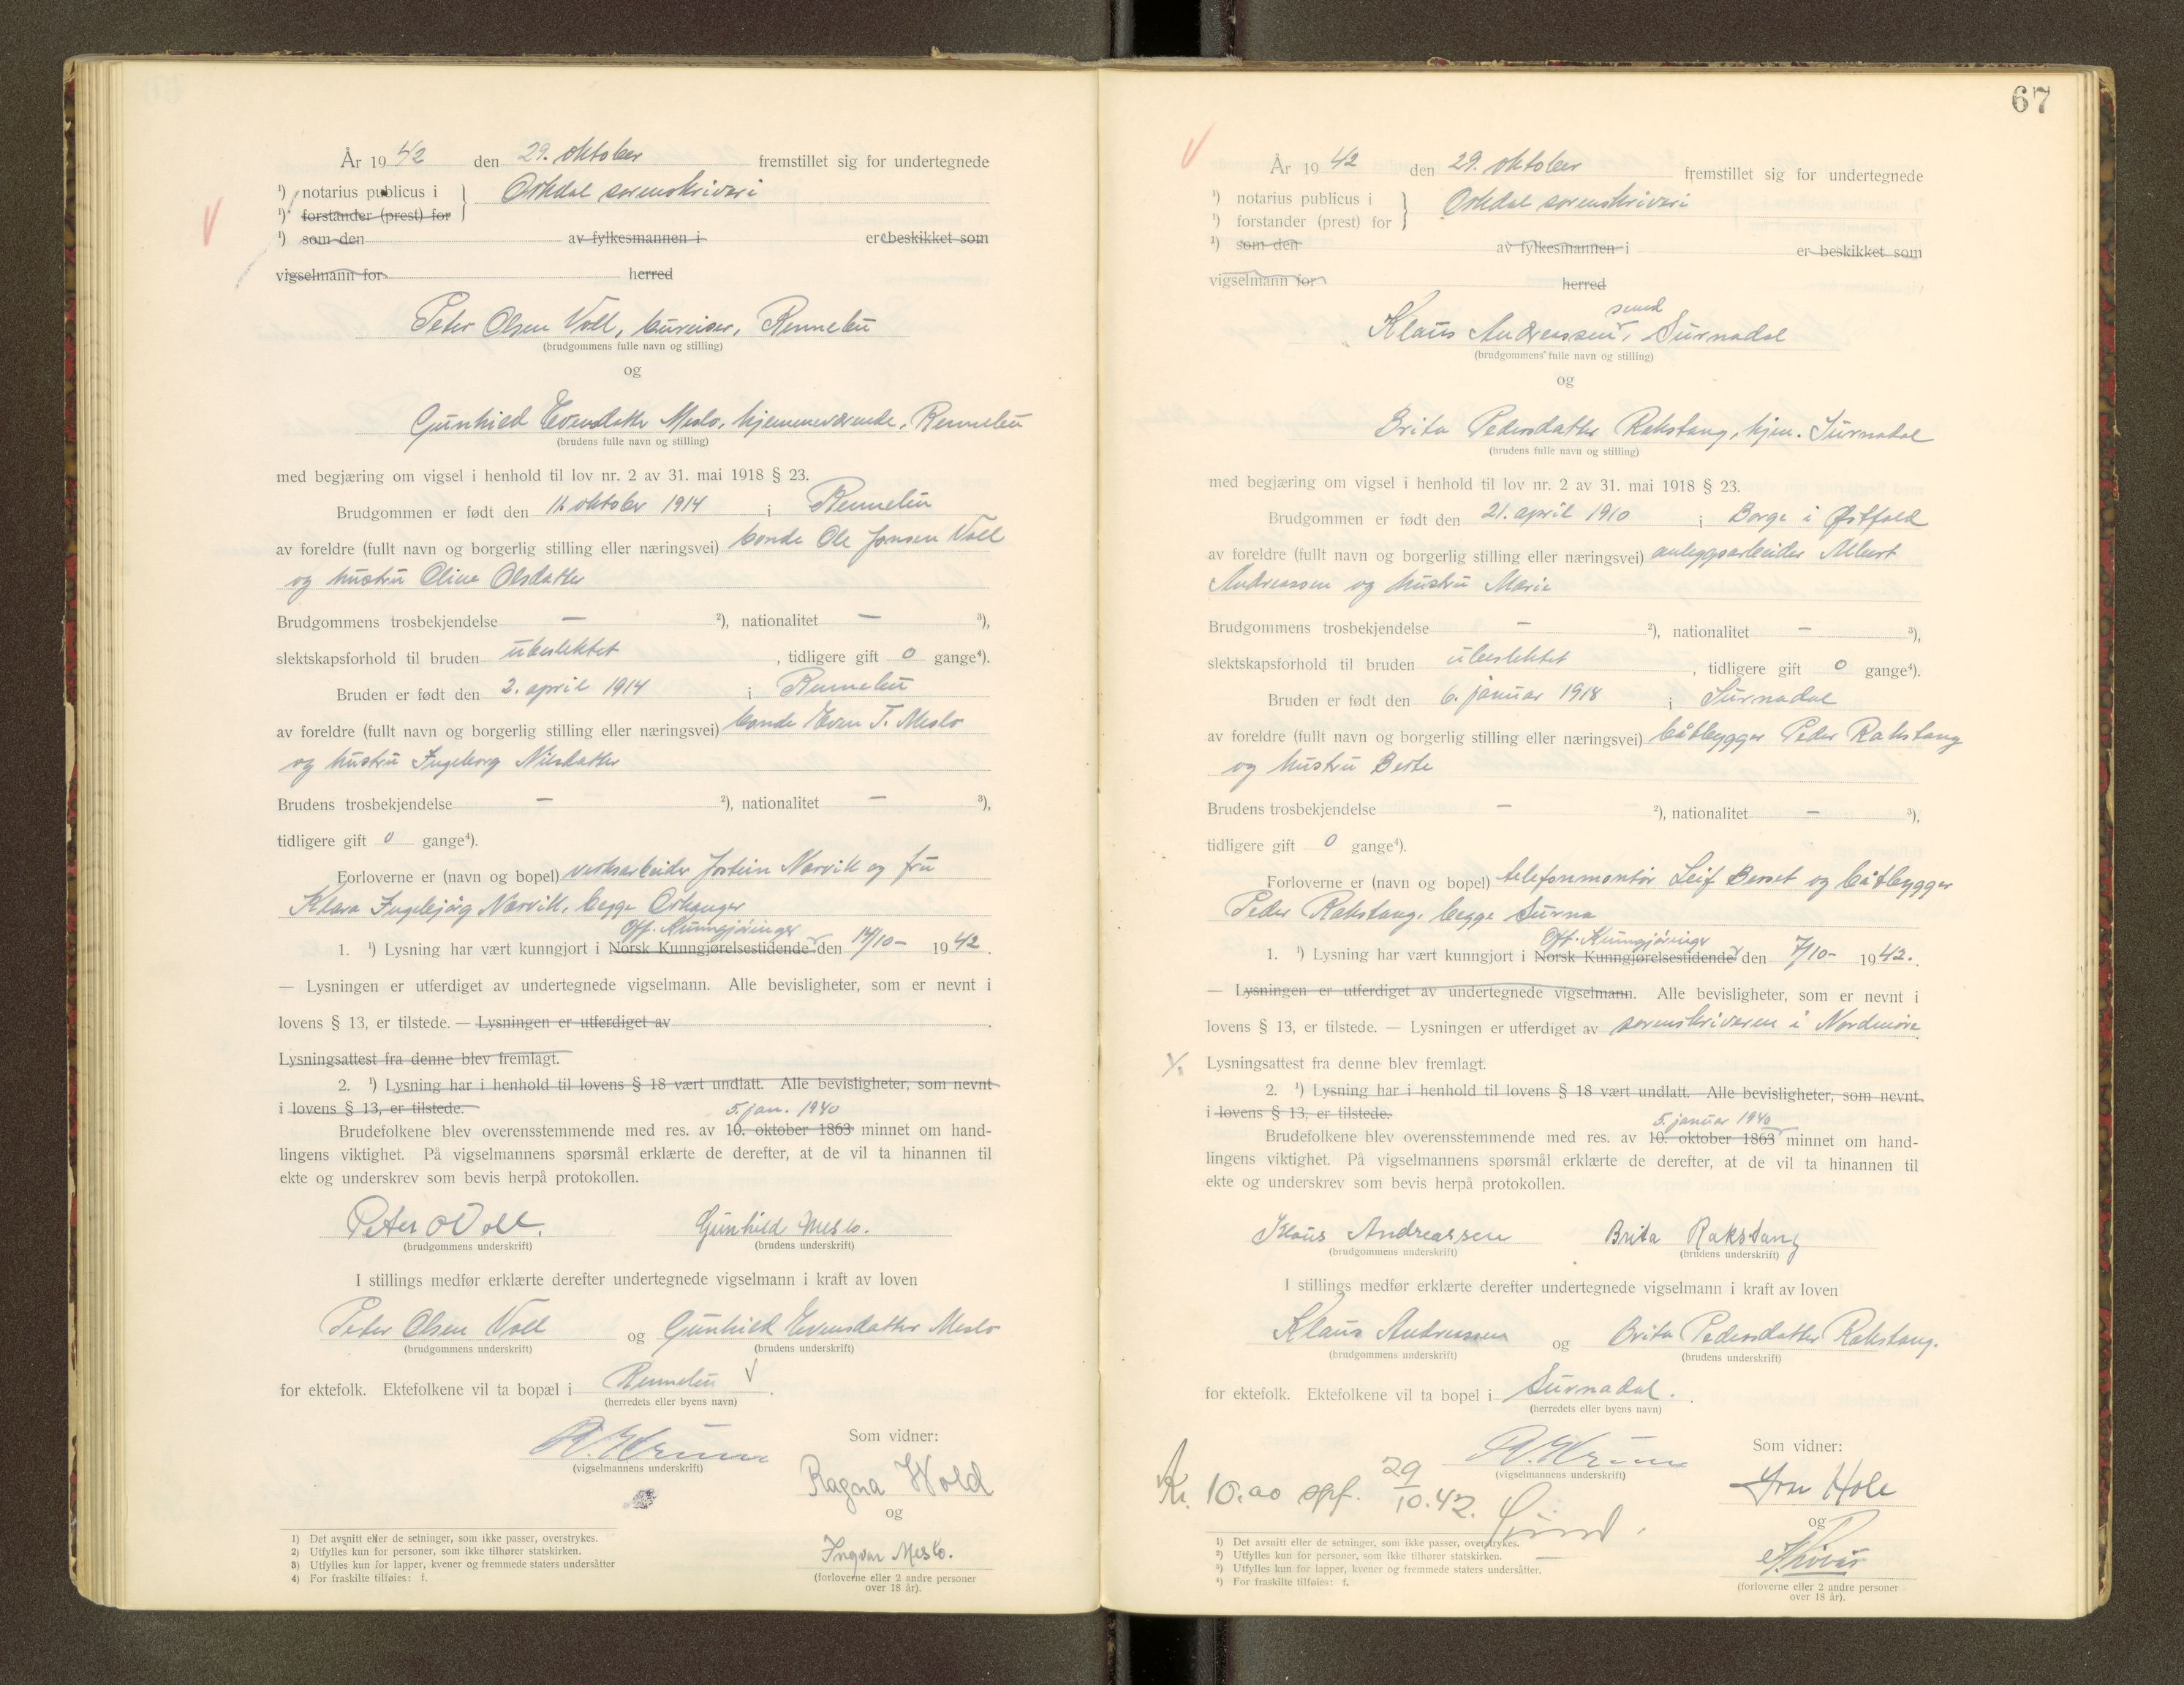 År 1942 den 29. oktober fremstillet sig for undertegnede
¹) notarius publicus i } Orkdal sorenskriveri
¹) forstander (prest) for
¹) som den av fylkesmannen i er beskikket som
vigselmann for herred
Peter Olsen Voll, bureiser, Rennebu
(brudgommens fulle navn og stilling)
og
Gunhild Evensdatter Meslo, hjemmeværende, Rennebu
(brudens fulle navn og stilling)
med begjæring om vigsel i henhold til lov nr. 2 av 31. mai 1918 § 23.
Brudgommen er født den oktober 1914 i Rennebu
av foreldre (fullt navn og borgerlig stilling eller næringsvei) bonde Ole Jonsen Voll
og hustru Oline Olsdatter
Brudgommens trosbekjendelse — ²), nationalitet — ³),
slektskapsforhold til bruden ubeslektet , tidligere gift 0 gange⁴).
Bruden er født den 2. april 1914 i Rennebu
av foreldre (fullt navn og borgerlig stilling eller næringsvei) bonde Even T. Meslo
og hustru Ingeborg Nilsdatter
Brudens trosbekjendelse — ²), nationalitet — ³),
tidligere gift 0 gange⁴).
Forloverne er (navn og bopel) verksarbeider Jostein Narvik og fru
Klara Ingebjørg Narvik, begge Orkanger
Off. Kunngjøringer
1. ¹) Lysning har vært kunngjort i Norsk Kunngjørelsestidende den 14/10- 1942.
— Lysningen er utferdiget av undertegnede vigselmann. Alle bevisligheter, som er nevnt i
lovens § 13, er tilstede. — Lysningen er utferdiget av
Lysningsattest fra denne blev fremlagt.
2. ¹) Lysning har i henhold til lovens § 18 vært undlatt. Alle bevisligheter, som nevnt
i lovens § 13, er tilstede.
5. jan. 1940
Brudefolkene blev overensstemmende med res. av 10. oktober 1863 minnet om hand-
lingens viktighet. På vigselmannens spørsmål erklærte de derefter, at de vil ta hinannen til
ekte og underskrev som bevis herpå protokollen.
Peter O Voll. Gunhild Meslo.
(brudgommens underskrift) (brudens underskrift)
I stillings medfør erklærte derefter undertegnede vigselmann i kraft av loven
Peter Olsen Voll og Gunhild Evensdatter Meslo
(brudgommens underskrift) (brudens underskrift)
for ektefolk. Ektefolkene vil ta bopæl i Rennebu .
(herredets eller byens navn)
Som vidner:
(vigselmannens underskrift)
Ragna Wold
og
Ingvar Meslo.
(forloverne eller 2 andre personer
over 18 år).
1) Det avsnitt eller de setninger, som ikke passer, overstrykes.
2) Utfylles kun for personer, som ikke tilhører statskirken.
3) Utfylles kun for lapper, kvener og fremmede staters undersåtter
4) For fraskilte tilføies: f.
67
År 1942 den 29. oktober fremstillet sig for undertegnede
¹) notarius publicus i } Orkdal sorenskriveri
¹) forstander (prest) for
¹) som den av fylkesmannen i er beskikket som
vigselmann for herred
smed
Klaus Andreassen, Surnadal
(brudgommens fulle navn og stilling)
og
Brita Pedersdatter Rakstang, hjem. Surnadal
(brudens fulle navn og stilling)
med begjæring om vigsel i henhold til lov nr. 2 av 31. mai 1918 § 23.
Brudgommen er født den 21. april 1910 i Borge i Østfold
av foreldre (fullt navn og borgerlig stilling eller næringsvei) anleggsarbeider Albert
Andreassen og hustru Marie
Brudgommens trosbekjendelse — ²), nationalitet — ³),
slektskapsforhold til bruden ubeslektet , tidligere gift 0 gange⁴).
Bruden er født den 6. januar 1918 i Surnadal
av foreldre (fullt navn og borgerlig stilling eller næringsvei) båtbygger Peder Rakstang
og hustru Berte
Brudens trosbekjendelse — ²), nationalitet — ³),
tidligere gift 0 gange⁴).
Forloverne er (navn og bopel) telefonmontør Leif Berset og båtbygger
Peder Rakstang, begge Surna
Off. Kunngjøringer
1. ¹) Lysning har vært kunngjort i Norsk Kunngjørelsestidende den 7/10- 1942.
— Lysningen er utferdiget av undertegnede vigselmann. Alle bevisligheter, som er nevnt i
lovens § 13, er tilstede. — Lysningen er utferdiget av sorenskriveren i Nordmøre
Lysningsattest fra denne blev fremlagt.
2. ¹) Lysning har i henhold til lovens § 18 vært undlatt. Alle bevisligheter, som nevnt
i lovens § 13, er tilstede.
5. januar 1940
Brudefolkene blev overensstemmende med res. av 10. oktober 1863 minnet om hand-
lingens viktighet. På vigselmannens spørsmål erklærte de derefter, at de vil ta hinannen til
ekte og underskrev som bevis herpå protokollen.
Klaus Andreassen Brita Rakstang
(brudgommens underskrift) (brudens underskrift)
I stillings medfør erklærte derefter undertegnede vigselmann i kraft av loven
Klaus Andreassen og Brita Pedersdatter Rakstang.
(brudgommens underskrift) (brudens underskrift)
for ektefolk. Ektefolkene vil ta bopel i Surnadal.
(herredets eller byens navn)
Som vidner:
(vigselmannens underskrift)
Kr. 10.00 opf. 29/10.42.
Hole
og
(forloverne eller 2 andre personer
over 18 år).
¹) Det avsnitt eller de setninger, som ikke passer, overstrykes.
²) Utfylles kun for personer, som ikke tilhører statskirken.
³) Utfylles kun for lapper, kvener og fremmede staters undersåtter.
⁴) For fraskilte tilføies: f.